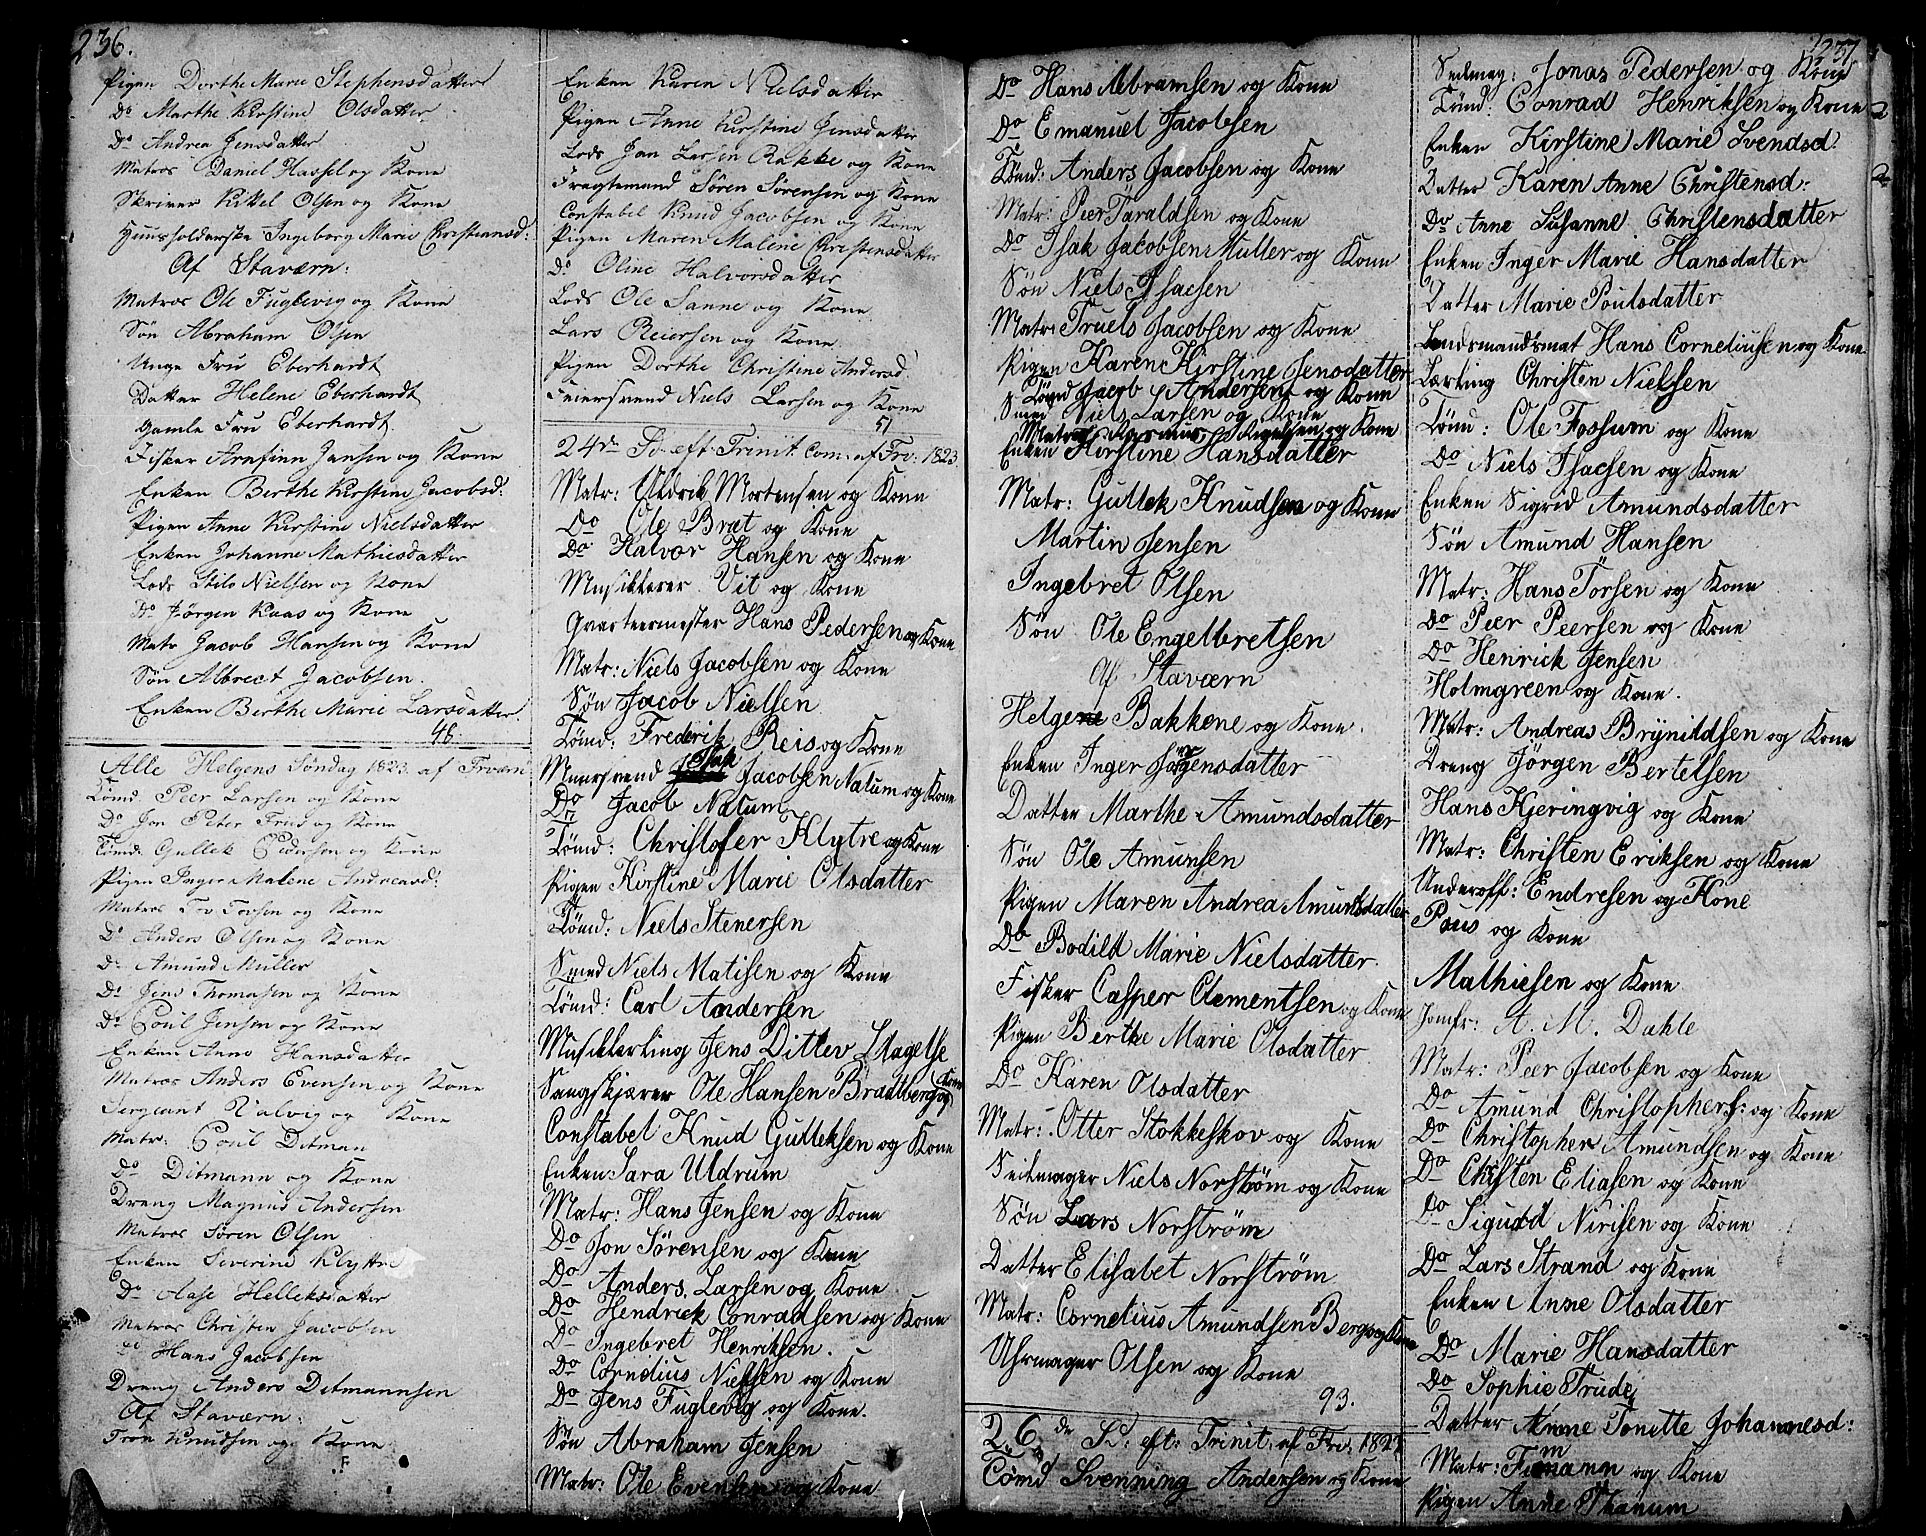 236.
Pigen Dorthe Marie Stephensdatter
Do Marthe Kirstine Olsdatter
Do Andrea Jensdatter
Matros Daniel Hassel og Kone
Skriver Kittel Olsen og Kone
Huusholderske Ingeborg Marie Christiansd:
Af Staværn:
Matros Ole Fuglevig og Kone
Søn Abraham Olsen
Unge Fru Eberhardt
Datter Helene Eberhardt
Gamle Fru Eberhardt.
Fisker Arnfinn Jansen og Kone
Enken Berthe Kirstine Jacobsd:
Pigen Anne Kirstine Nielsdatter
Enken Johanne Mathiesdatter
Lods Nielsen og Kone
Do Jørgen Kaas og Kone
Matr Jacob Hansen og Kone
Søn Albrect Jacobsen.
Enken Berthe Marie Larsdatter.
48.
Alle Helgens Søndag 1823. af Frværn
Tømd Peer Larsen og Kone
Do Jon Peter Frud og Kone
Tømd: Gullek Pedersen og Kone
Pigen Inger Malene Andreasd:
Matros Tov Tovsen og Kone
Do Anders Olsen og Kone
Do Amund Muller
Do Jens Thomasen og Kone
Do Poul Jensen og Kone
Enken Anne Hansdatter
Matros Anders Evensen og Kone
Sergeant Kalvig og Kone
Matr: Poul Ditman
Do Ditmann og Kone
Dreng Magnud Andersen
Matros Søren Olsen
Enken Severine Klyttre
Do Aase Helleksdatter
Matros Christen Jacobsen
Do Hans Jacobsen
Dreng Anders Ditmannsen
Af Staværn:
Tron Knudsen og Kone
Enken Karen Nielsdatter
Pigen Anne Kirstine Jensdatter
Lods Jan Larsen Rakke og Kone
Fragtemand Søren Sørensen og Kone
Constabel Knud Jacobsen og Kone
Pigen Maren Malene Christensdatter
Do Oline Halvorsdatter
Lods Ole Sanne og Kone
Lars Reiersen og Kone
Pigen Dorthe Christine Andersd.
Feiersvend Niels Larsen og Kone
51
24de Sd. eft Trinit. Com: af Fr: 1823.
Matr: Uldrik Mortensen og Kone
Do Ole Bræt og Kone
Do Halvor Hansen og Kone
Musikterer Vit og Kone
Qvarteermester Hans Pedersen og Kone
Matr: Niels Jacobsen og Kone
Søn Jacob Nielsen
Tømd: Frederik Reis og Kone
Muursvend Isak Jacobsen Nalum og Kone
Do Jacob Nalum
Tømd: Christofer Klytre og Kone
Pigen Kirstine Marie Olsdatter
Tømd: Niels Stenersen
Smed Niels Matisen og Kone
Tømd: Carl Andersen
Musiklerling Jens Ditlev Slagelse
Sangskjærer Ole Hansen Brådtberg og Kone
Constabel Knud Gulleksen og Kone
Enken Sara Uldrum
Matr: Hans Jensen og Kone
Do Jon Sørensen og Kone
Do Anders Larsen og Kone
Do Hendrick Conradsen og Kone
Do Ingebret Henriksen.
Do Cornelius Nielsen og Kone
Do Jens Fuglevig og Kone.
Søn Abraham Jensen
Matr: Ole Evensen og Kone
Do Hans Abramsen og Kone
Do Emanuel Jacobsen
Tømd: Anders Jacobsen og Kone
Matr: Peer Taraldsen og Kone
Do Isak Jacobsen Muller og Kone
Søn Niels Isacsen
Matr: Truels Jacobsen og Kone
Pigen Karen Kirstine Jensdatter
Tømd Jacob Andersen og Kone
Smed Niels Larsen og Kone
Matros Rasmus og Kone
Enken Kirstine Hansdatter
Matr: Gullek Knudsen og Kone
Martin Jensen
Ingebret Olsen
Søn Ole Engelbretsen
Af Staværn
Helgene Bakkene og Kone.
Enken Inger Jörgensdatter
Datter Marthe Amundsdatter
Søn Ole Amunsen
Pigen Maren Andrea Amundsdatter
Do Bodild Marie Nielsdatter.
Fisker Casper Clementsen og Kone
Pigen Berthe Marie Olsdatter
Do Karen Olsdatter
Matr: Otter Stokkeskov og Kone
Seilmager Niels Norström og Kone
Søn Lars Norström
Datter Elisabet Norström
Matr: Cornelius Amundsen Berg og Kone
Uhrmager Olsen og Kone
93.
26de S: eft: Trinit: af Fr: 1823
Tømd Svenning Andersen og Kone
237
Seilmag: Jonas Pedersen og Kone
Tømd: Conrad Henriksen og Kone
Enken Kirstine Marie Svendsd:
Datter Karen Anne Christensd:
Do Anne Susanne Christensdatter
Enken Inger Marie Hansdatter
Datter Marie Poulsdatter
Lendsmandsmat Hans Corneliusen og Kone
Lærling Christen Nielsen
Tømd: Ole Fossum og Kone
Do Niels Isacsen og Kone
Enken Sigrid Amundsdatter
Søn Amund Hansen
Matr: Hans Törsen og Kone
Do Peer Peersen og Kone
Do Henrick Jensen
Holmgreen og Kone.
Matr: Andreas Brynildsen og Kone
Dreng Jörgen Bertelsen
Hans Kjeringvig og Kone
Matr: Christen Eriksen og Kone
Underoff: Endresen og Kone
Pous og Kone
Mathiesen og Kone
Jomfr: A. M. Dahle
Matr: Peer Jacobsen og Kone
Do Amund Christophers: og Kone
Do Christopher Amundsen og Kone
Do Christen Eliasen og Kone
Do Sigudd Nirisen og Kone
Do Lars Strand og Kone
Enken Anne Olsdatter
Do Marie Hansdatter
Do Sophie Trude
Datter Anne Tonette Johannesd:
Matr: Fimann og Kone
Pigen Anne Thanum